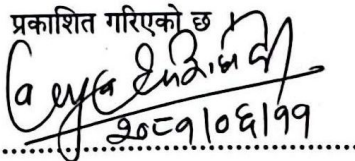 प्रकाशित गरिएको छ
२०८१।०६।११
.......................................................